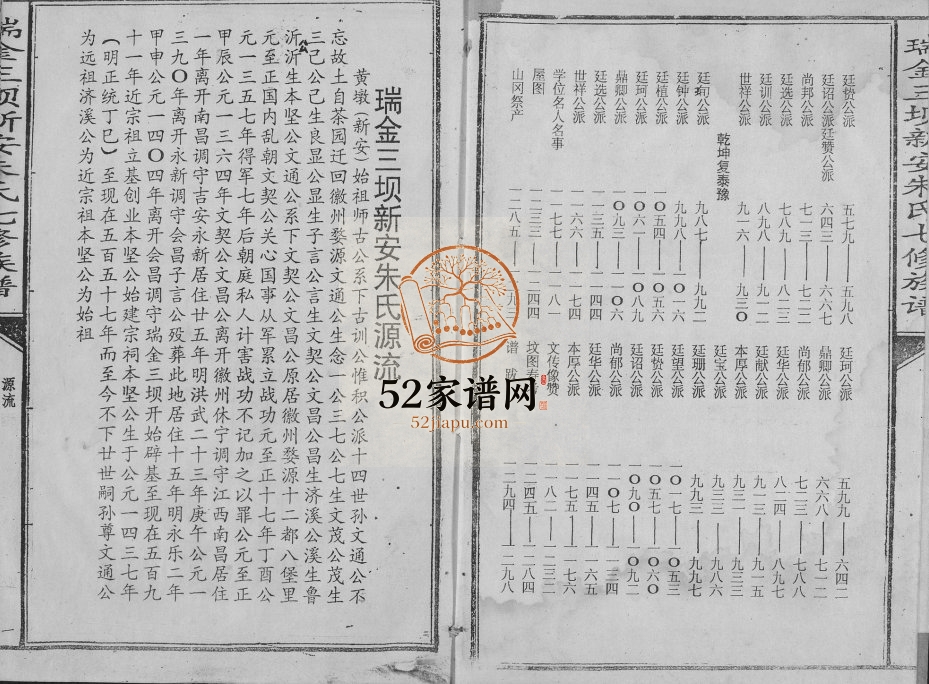 瑞金三坝新安朱氏七修族谱
廷贽公派 五七九——五九八
廷珂公派 五九九——六四二
廷诏公派廷赞公派 六四三——六六七
鼎卿公派 六六八——七一二
尚邦公派 七一三——七二二
尚郁公派 七二三——七八八
廷选公派 七八九——八二三
廷华公派 八二四——八九七
廷训公派
廷献公派 九一三——九一五
世祥公派 九一六——九三〇
本厚公派 九三一——九三三
乾坤复泰豫
廷宝公派 九八六
廷珣公派 九八七——九九二
廷珊公派 九九三——九九七
廷钟公派 九九八——一〇一六
廷望公派 一〇一七——一〇五三
廷植公派 一〇五四
廷贽公派 一〇五七——一〇六〇
廷珂公派 一〇六一——一〇八九
廷诏公派 一〇九〇——一〇九二
鼎卿公派 一〇九三——一一〇六
尚郁公派 一一〇七——一一三四
世祥公派 一一三五——一一四四
廷华公派 一一四五——一一六五
廷选公派 一一六六——一一七四
本厚公派 一一七五——一一七六
学位名人名事 一一七七——一一八一
文传像赞 一一八二
屋图 一二三三——一二四四
坟图寿 一二四五——一二八四
山冈祭产 一二八五——一二九三
谱跋 一二九四——一二九八
瑞金三坝新安朱氏源流
黄墩(新安)始祖师古公系下古训公惟积公派十四世孙文通公不
忘故土自茶园迁回徽州婺源文通公生念一公三七公七生文茂公茂生
三己公己生良显公显生子言公言生文契公文昌公昌生济溪公溪生鲁
沂公沂生本坚公文通公系下文契公文昌公原居徽州婺源十二都八堡里
元至正国内乱朝文契公关心国事从军累立战功元至正十七年丁酉公
元一三五七年得军七年后朝庭私人计害战功不记加之以罪公元至正
甲辰公元一三六四年文契公文昌公离开徽州休宁调守江西南昌居住
一年离开南昌调守吉安永新居住廿五年明洪武二十三年庚午公元一
三九〇年离开永新调守会昌子言公殁葬此地居住十五年明永乐二年
甲申公元一四〇四年离开会昌调守瑞金三坝开始辟基至现在五百九
十一年近宗祖立基创业本坚公始建宗祠本坚公生于公元一四三七年
(明正统丁巳)至现在五百五十七年而至今不下廿世嗣孙尊文通公
为远祖济溪公为近宗祖本坚公为始祖
瑞金三坝新安朱氏七修族谱
源流
一
52家谱网
52jiapu.com